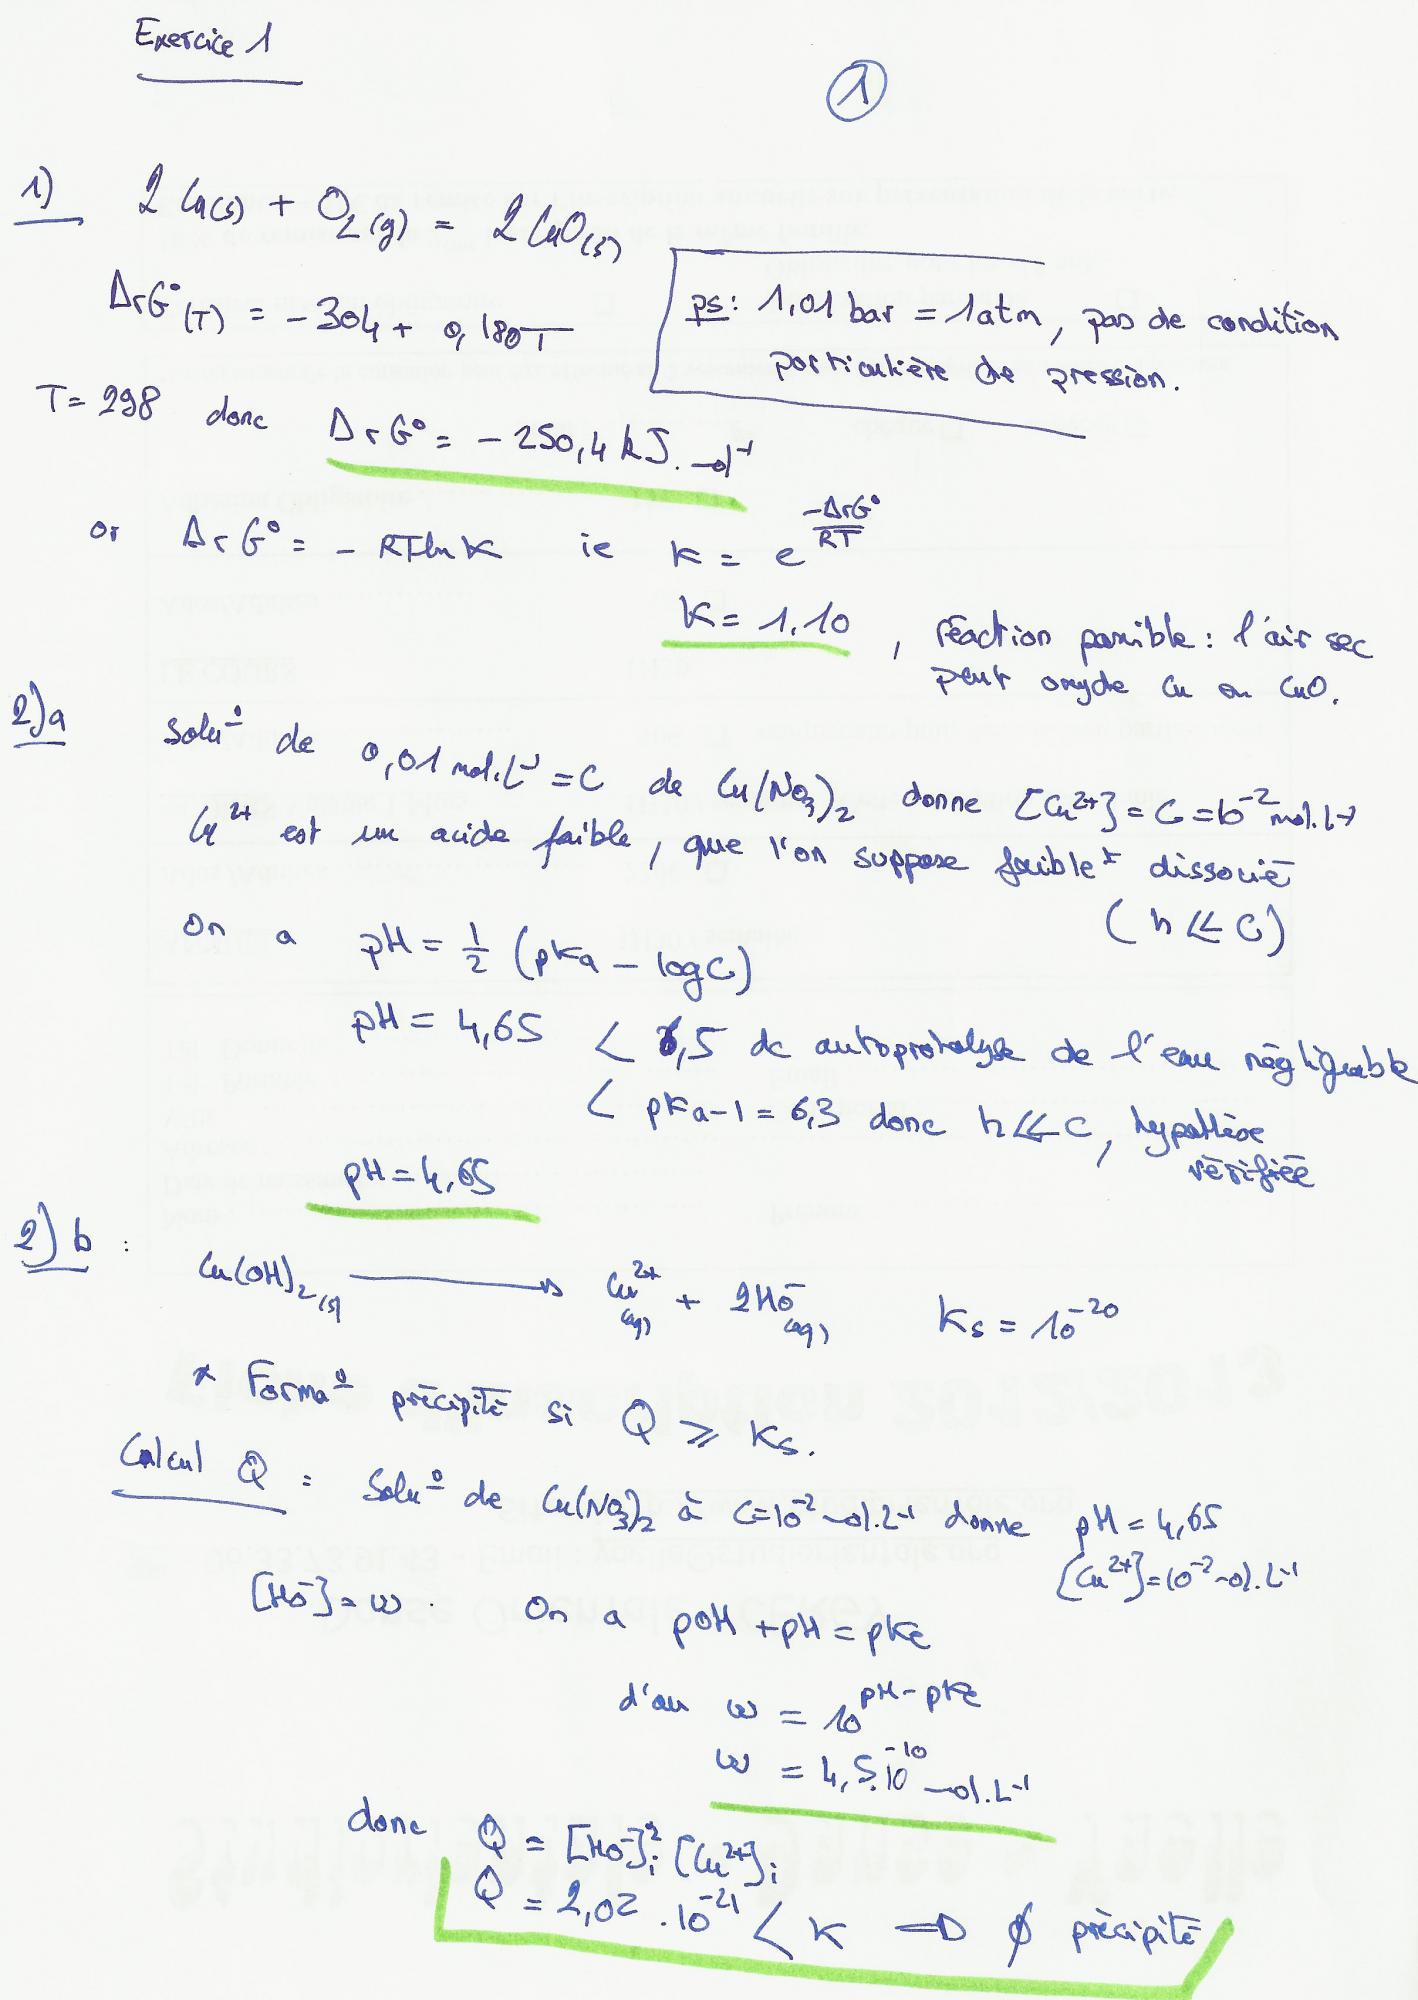 Exercice 1
①
1) 2 Cu(s) + O₂(g) = 2 CuO(s)
ΔrG°(T) = -304 + 0,180T
ps : 1,01 bar = 1 atm, pas de condition
particulière de pression.
T = 298 donc ΔrG° = -250,4 kJ.mol⁻¹
or ΔrG° = - RT ln K ie K = e^(-ΔrG°/RT)
K = 1,10 , réaction possible : l'air sec
peut oxyde Cu en CuO.
2)a Solu° de 0,01 mol.L⁻¹ = C de Cu(NO₃)₂ donne [Cu²⁺] = C = 10⁻² mol.L⁻¹
Cu²⁺ est un acide faible, que l'on suppose faiblet dissocié
(h << C)
On a pH = 1/2 (pKa - log C)
pH = 4,65 < 6,5 dc autoprotolyse de l'eau négligeable
< pKa-1 = 6,3 donc h << C, hypothèse
vérifiée
pH = 4,65
2) b :
Cu(OH)₂(s) → Cu²⁺(aq) + 2HO⁻(aq) Ks = 10⁻²⁰
* Forma° précipité si Q ≥ Ks.
Calcul Q : Solu° de Cu(NO₃)₂ à C=10⁻² mol.L⁻¹ donne pH = 4,65
[Cu²⁺] = 10⁻² mol.L⁻¹
[HO⁻] = ω . On a pOH + pH = pKe
d'où ω = 10^(pH-pKe)
ω = 4,5.10⁻¹⁰ mol.L⁻¹
donc Q = [HO⁻]ᵢ² [Cu²⁺]ᵢ
Q = 2,02 . 10⁻²¹ < K ⇒ ∅ précipité